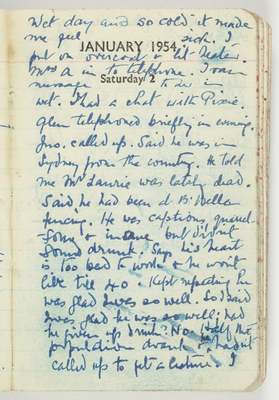 Wet day and so cold it made
me feel sick. I
JANUARY 1954
put on overcoat & lit heater.
Mrs A in to telephone. I ran
Saturday 2
message to
wet. I had a chat with Pixie.
Glen telephoned briefly in evening.
Jno. called up. Said he was in
Sydney from the country. He told
me Mc Laurie was lately dead.
Said he had been at
fencing. He was captious, quarrel-
some & inane but didn't
sound drunk. Says his heart
is too bad to work & he won't
live till 40. Kept repeating he
was glad I was so well. So I said
I was glad he was so well; had
he given up drink? No. Half the
population drank & he hadn't
called up to get a lecture. I